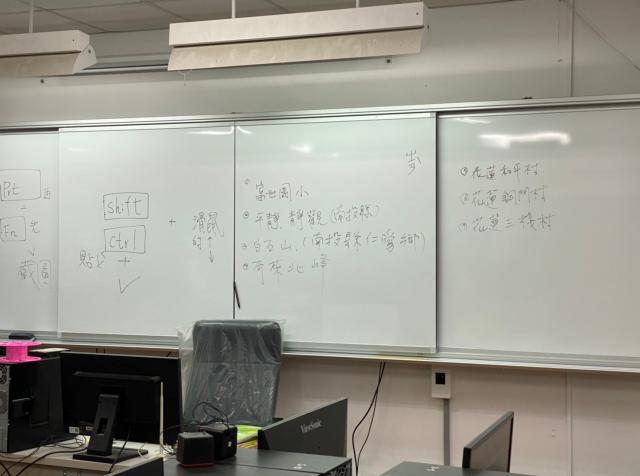 Prt
Fn 先
截圖
shift
ctrl
貼上
+
V
+ 滑鼠
的
富世國小
平靜 靜觀 (南投縣)
白石山 (南投縣仁愛鄉)
北峰
花蓮和平村
花蓮銅門村
花蓮三棧村
ViewSonic